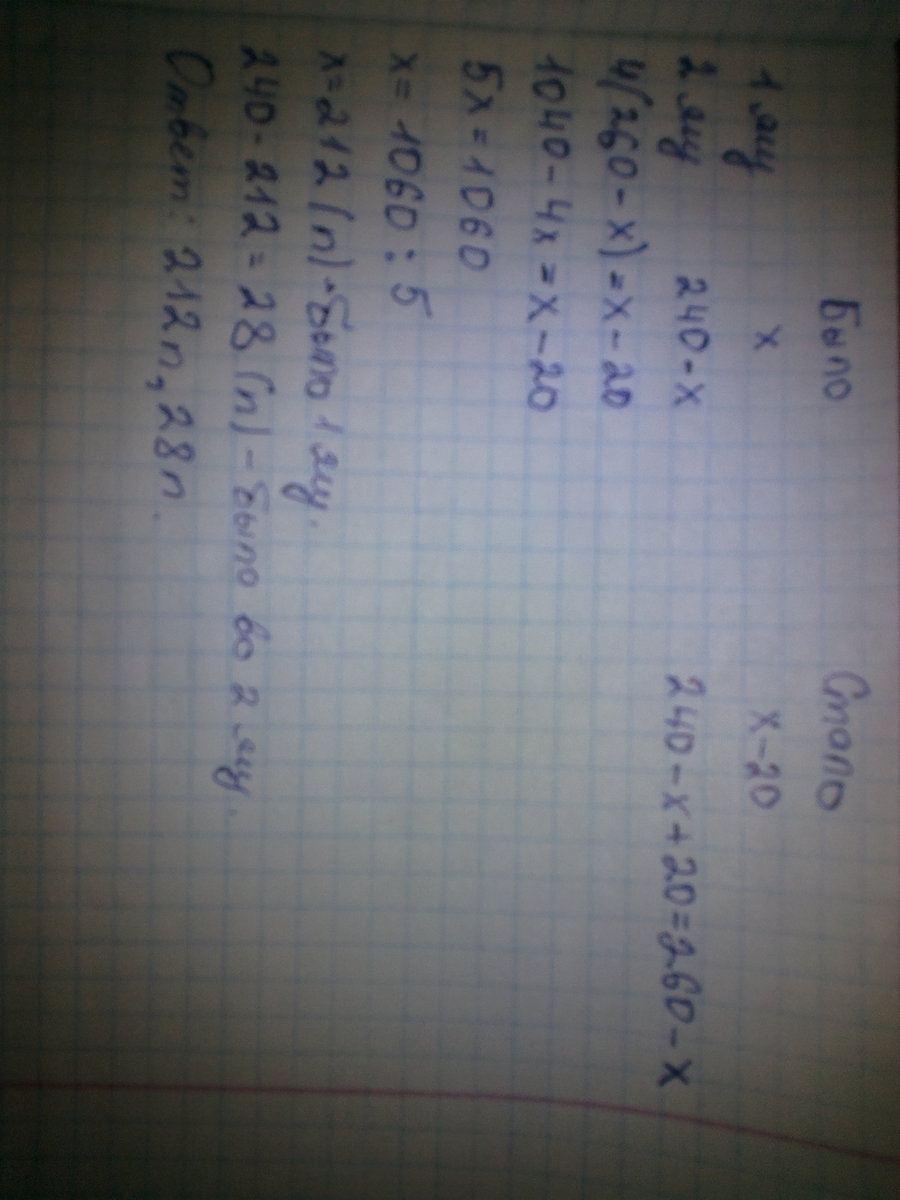 Было Стало
1 ящ x x-20
2 ящ 240-x 240-x+20=260-x
4(260-x)=x-20
1040-4x=x-20
5x=1060
x=1060:5
x=212(п)-было 1 ящ.
240-212=28(п)-было во 2 ящ.
Ответ: 212п, 28п.